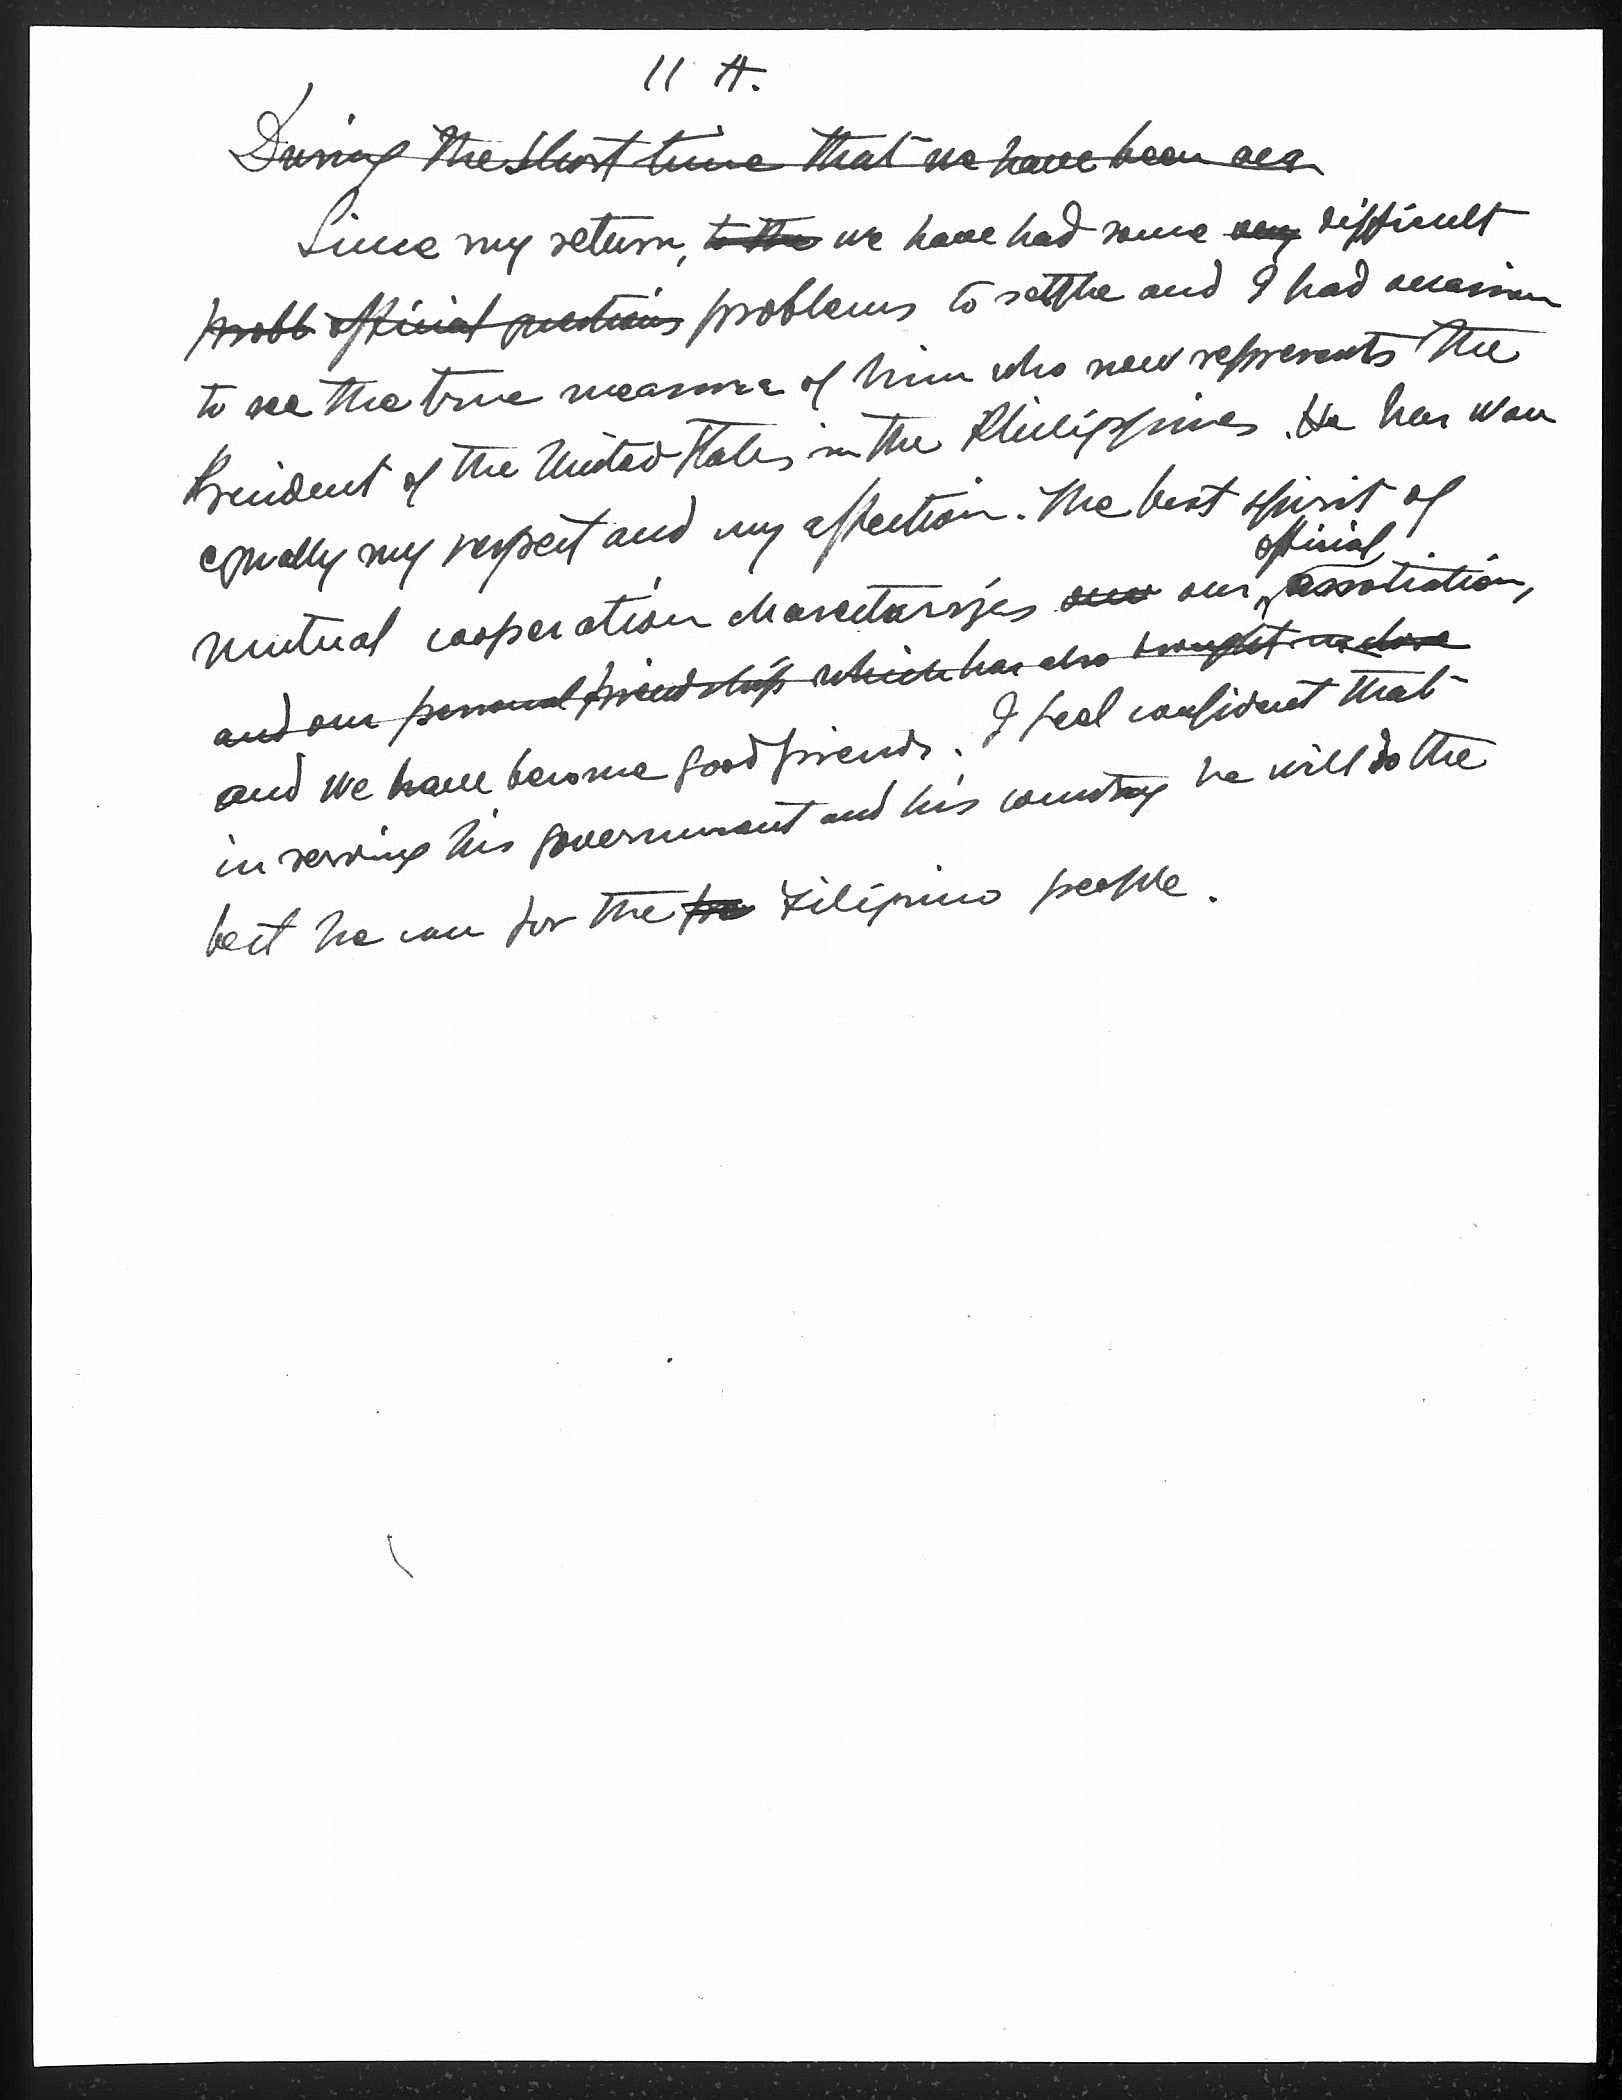 11 A.
During the short time that we have been
Since my return, to the we have had some very difficult
probl official questions problems to settle and I had occasion
to see the true measure of him who now represents the
President of the United States in the Philippines. He has won
equally my respect and my affection. The best spirit of
official
mutual cooperation charecterizes our our association,
and our personal friendship which has also brought us close
and we have become good friends. I feel confident that
in serving his government and his country he will do the
best he can for the Filipino people.